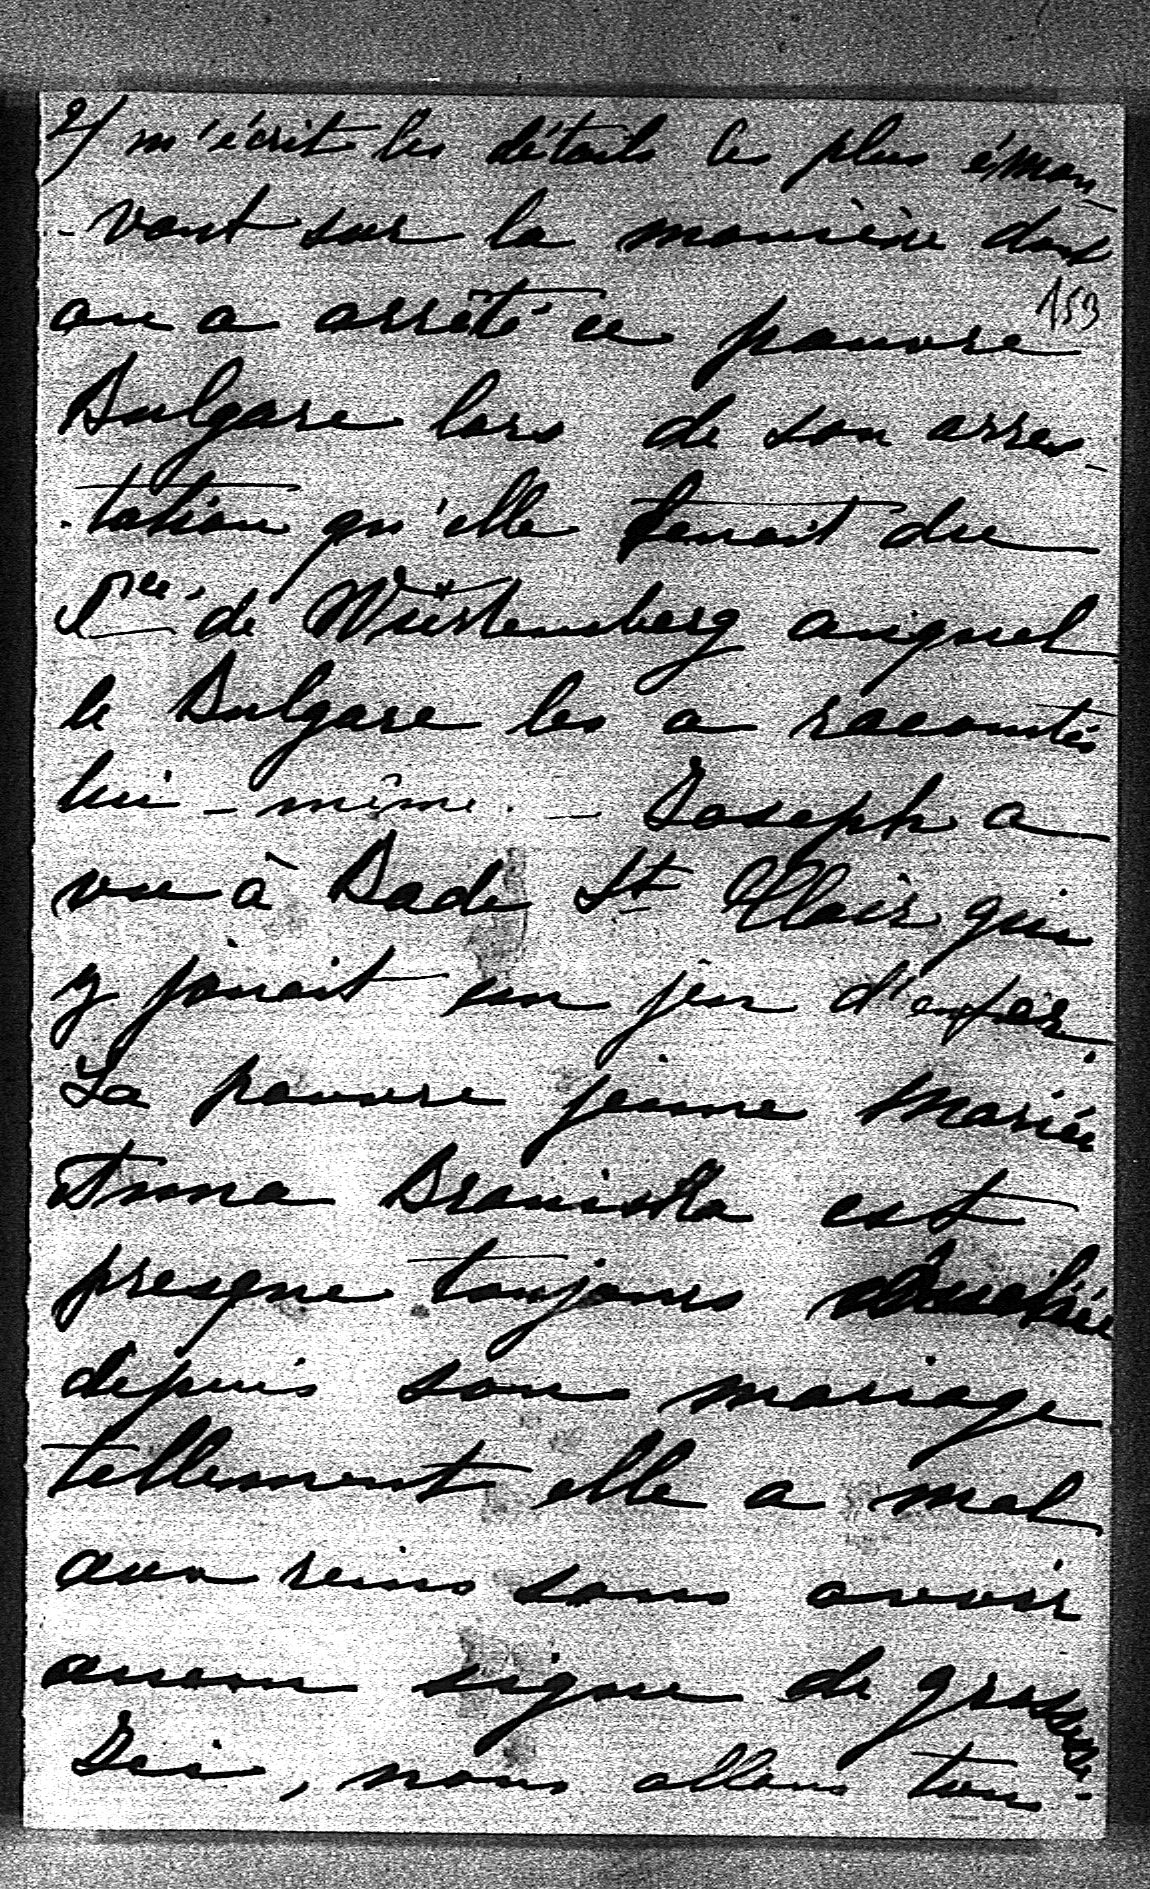 2/ m'écrit les détails les plus émou
-vant sur la manière dont
153
on a arrêté ce pauvre
Bulgare lors de son arres-
-tation qu'elle tenait du
Pce de Würtemberg auquel
le Bulgare les a racontés
lui-même. - Joseph a
vu à Bade St Clair qui
y jouait un jeu d'enfer.
La pauvre jeune mariée
Anna Braniska est
presque toujours couchée
depuis son mariage
tellement elle a mal
aux reins sans avoir
aucun signe de grossesse.
Ici, nous allons tous